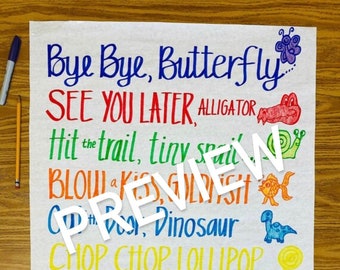 Bye Bye, Butterfly
SEE YOU LATER, ALLIGATOR
Hit the trail, tiny snail
BLOW a KISS, GOLDFISH
Out the Door, Dinosaur
CHOP CHOP LOLLIPOP
PREVIEW